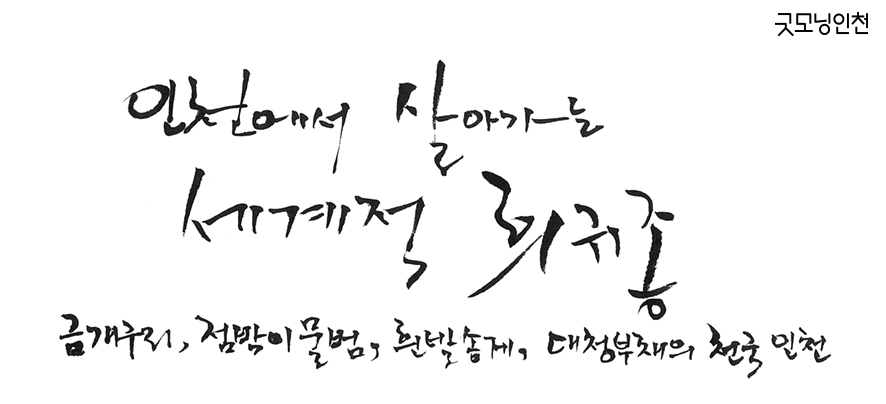 굿모닝인천
인천에서 살아가는
세계적 희귀종
금개구리, 점박이물범, 흰발농게, 대청부채의 천국 인천